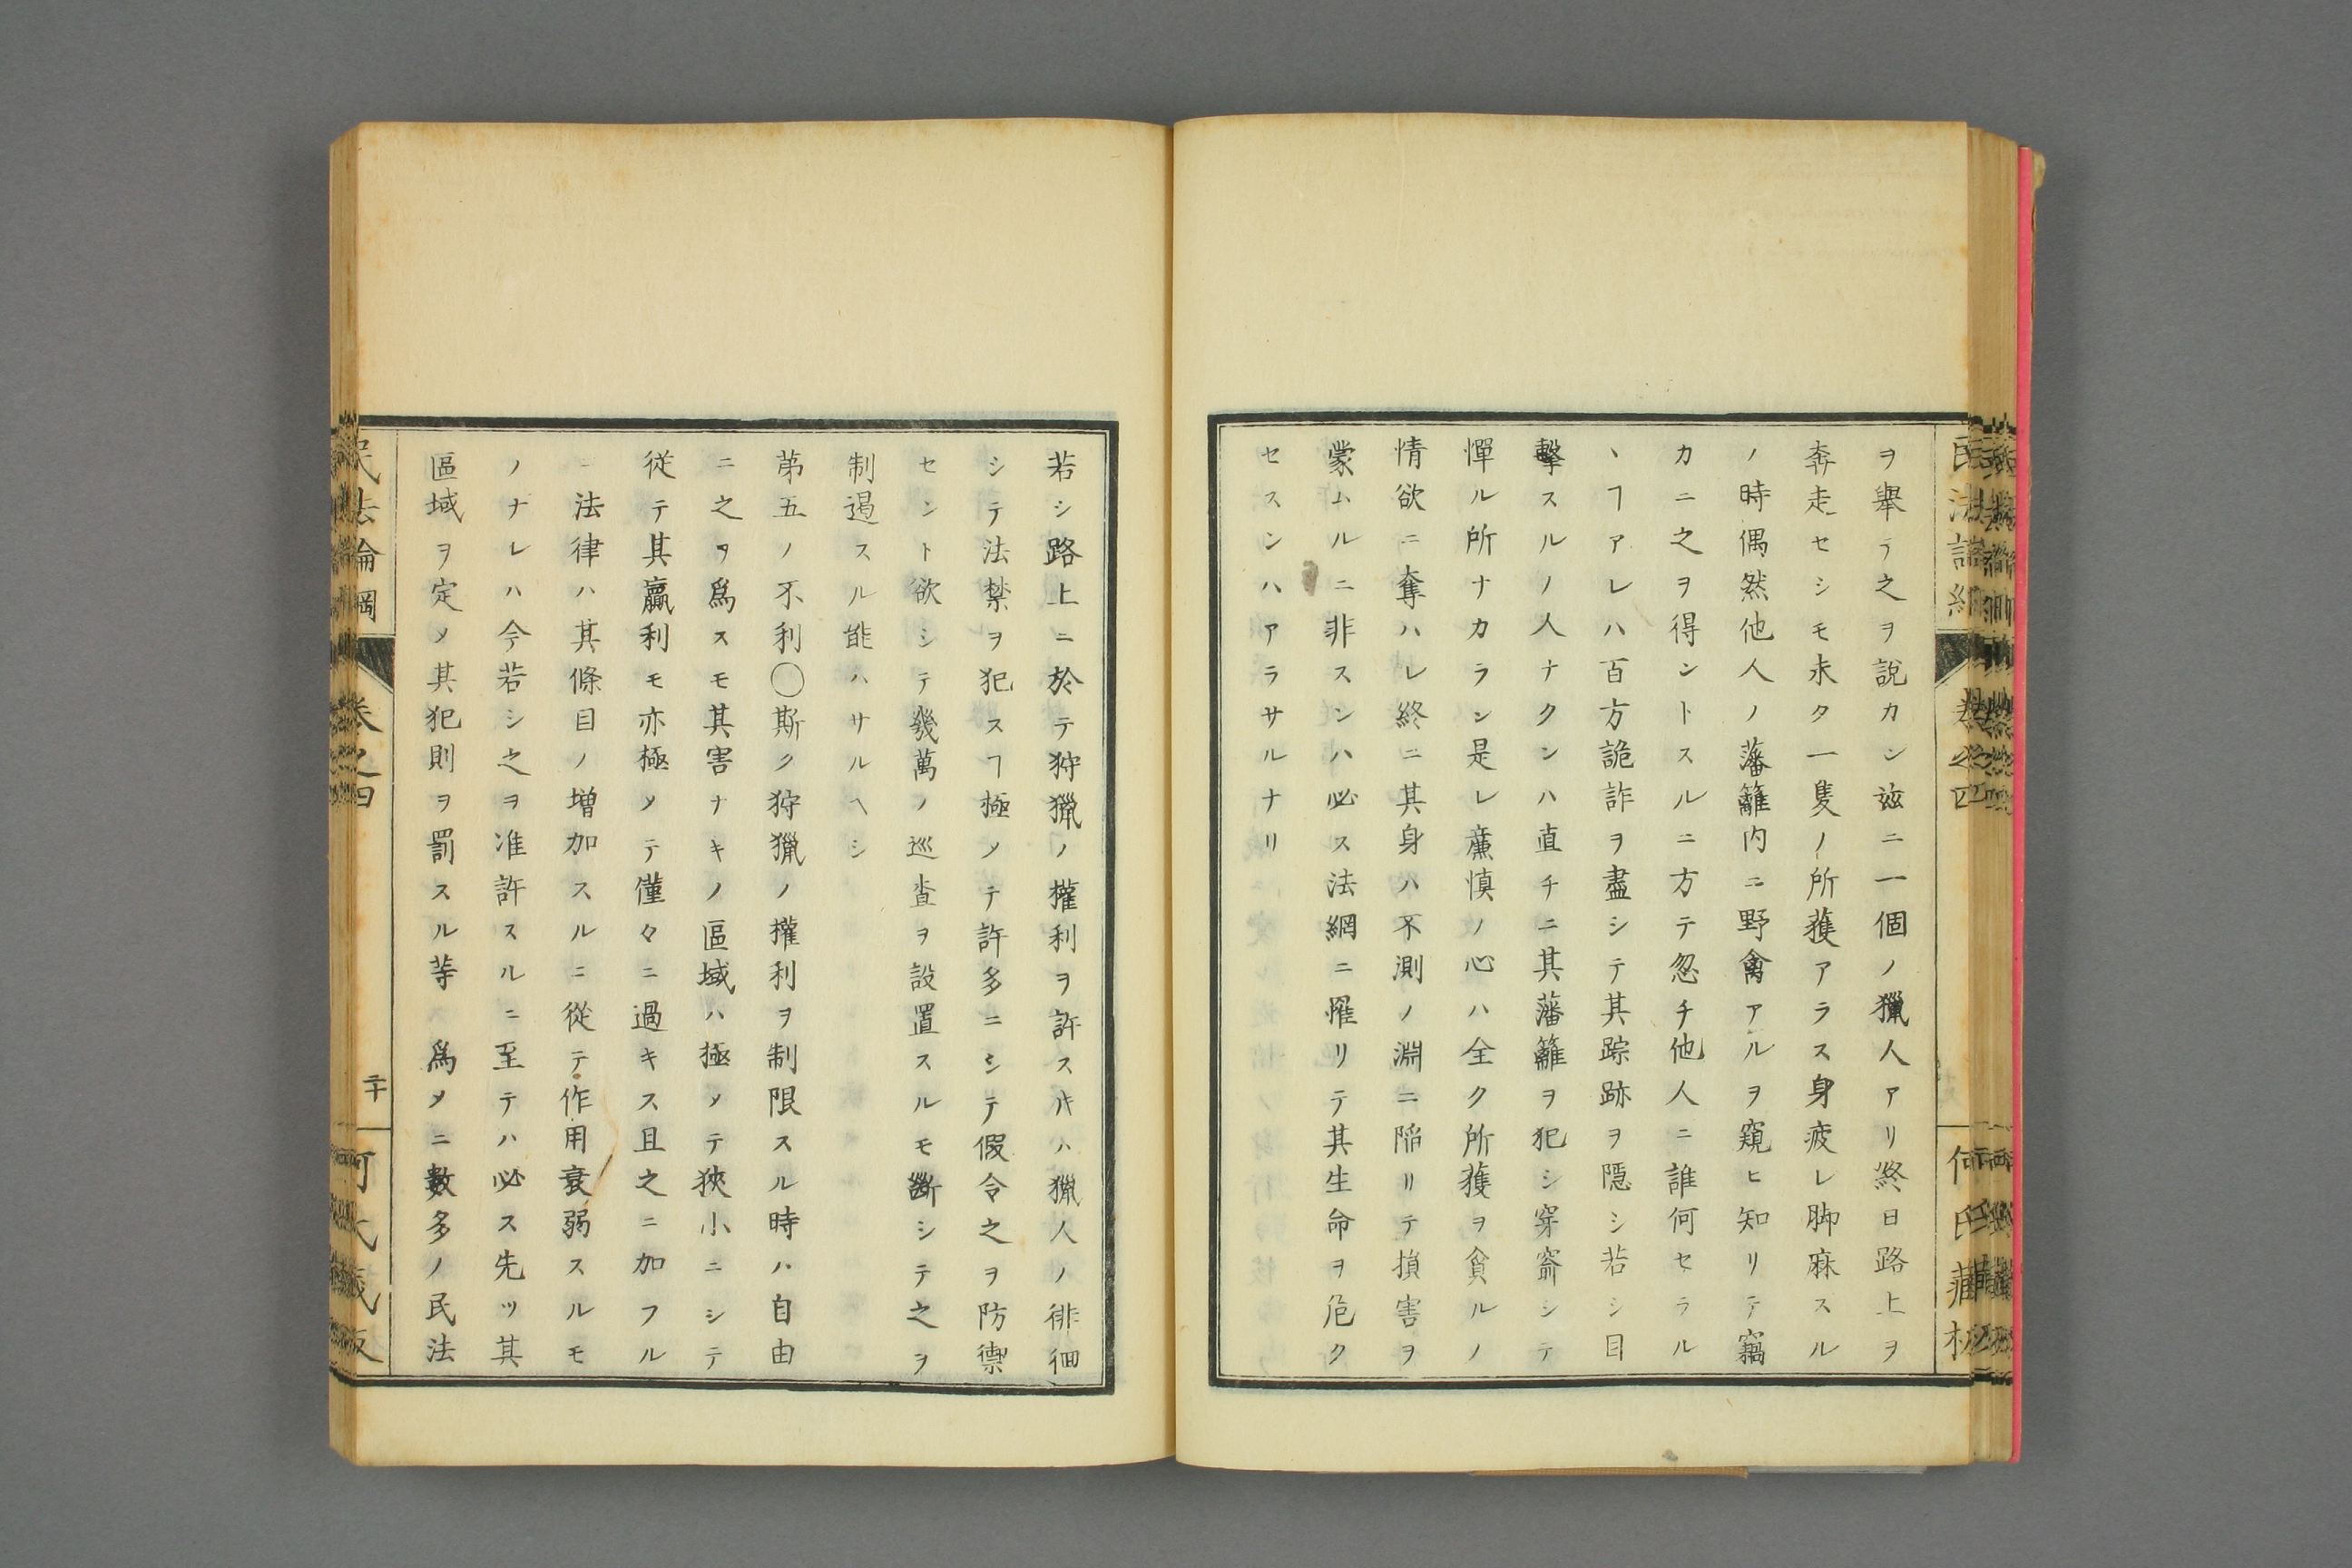 ヲ舉テ之ヲ說カン玆ニ一個ノ獵人アリ終日路上ヲ
奔走セシモ未タ一隻ノ所獲アラス身疲レ脚麻スル
ノ時偶然他人ノ藩籬内ニ野禽アルヲ窺ヒ知リテ竊
カニ之ヲ得ントスルニ方テ忽チ他人ニ誰何セラル
ヽヿアレハ百方詭詐ヲ盡シテ其踪跡ヲ隱シ若シ目
擊スルノ人ナクンハ直チニ其藩籬ヲ犯シ穿窬シテ
憚ル所ナカラン是レ廉慎ノ心ハ全ク所獲ヲ貪ルノ
情欲ニ奪ハレ終ニ其身ハ不測ノ淵ニ陷リテ損害ヲ
蒙ムルニ非スンハ必ス法網ニ罹リテ其生命ヲ危ク
セスンハアラサルナリ
若シ路上ニ於テ狩獵ノ權利ヲ許スㇳキハ獵人ノ徘徊
シテ法禁ヲ犯スヿ極メテ許多ニシテ假令之ヲ防禦
セント欲シテ幾萬ノ巡査ヲ設置スルモ斷シテ之ヲ
制遏スル能ハサルヘシ
第五ノ不利〇斯ク狩獵ノ權利ヲ制限スル時ハ自由
ニ之ヲ爲スモ其害ナキノ區域ハ極メテ狹小ニシテ
從テ其贏利モ亦極メテ僅々ニ過キス且之ニ加フル
ニ法律ハ其條目ノ增加スルニ從テ作用衰弱スルモ
ノナレハ今若シ之ヲ准許スルニ至テハ必ス先ツ其
區域ヲ定メ其犯則ヲ罰スル等ノ爲メニ數多ノ民法
民法論綱
卷之四
二十
何氏藏板